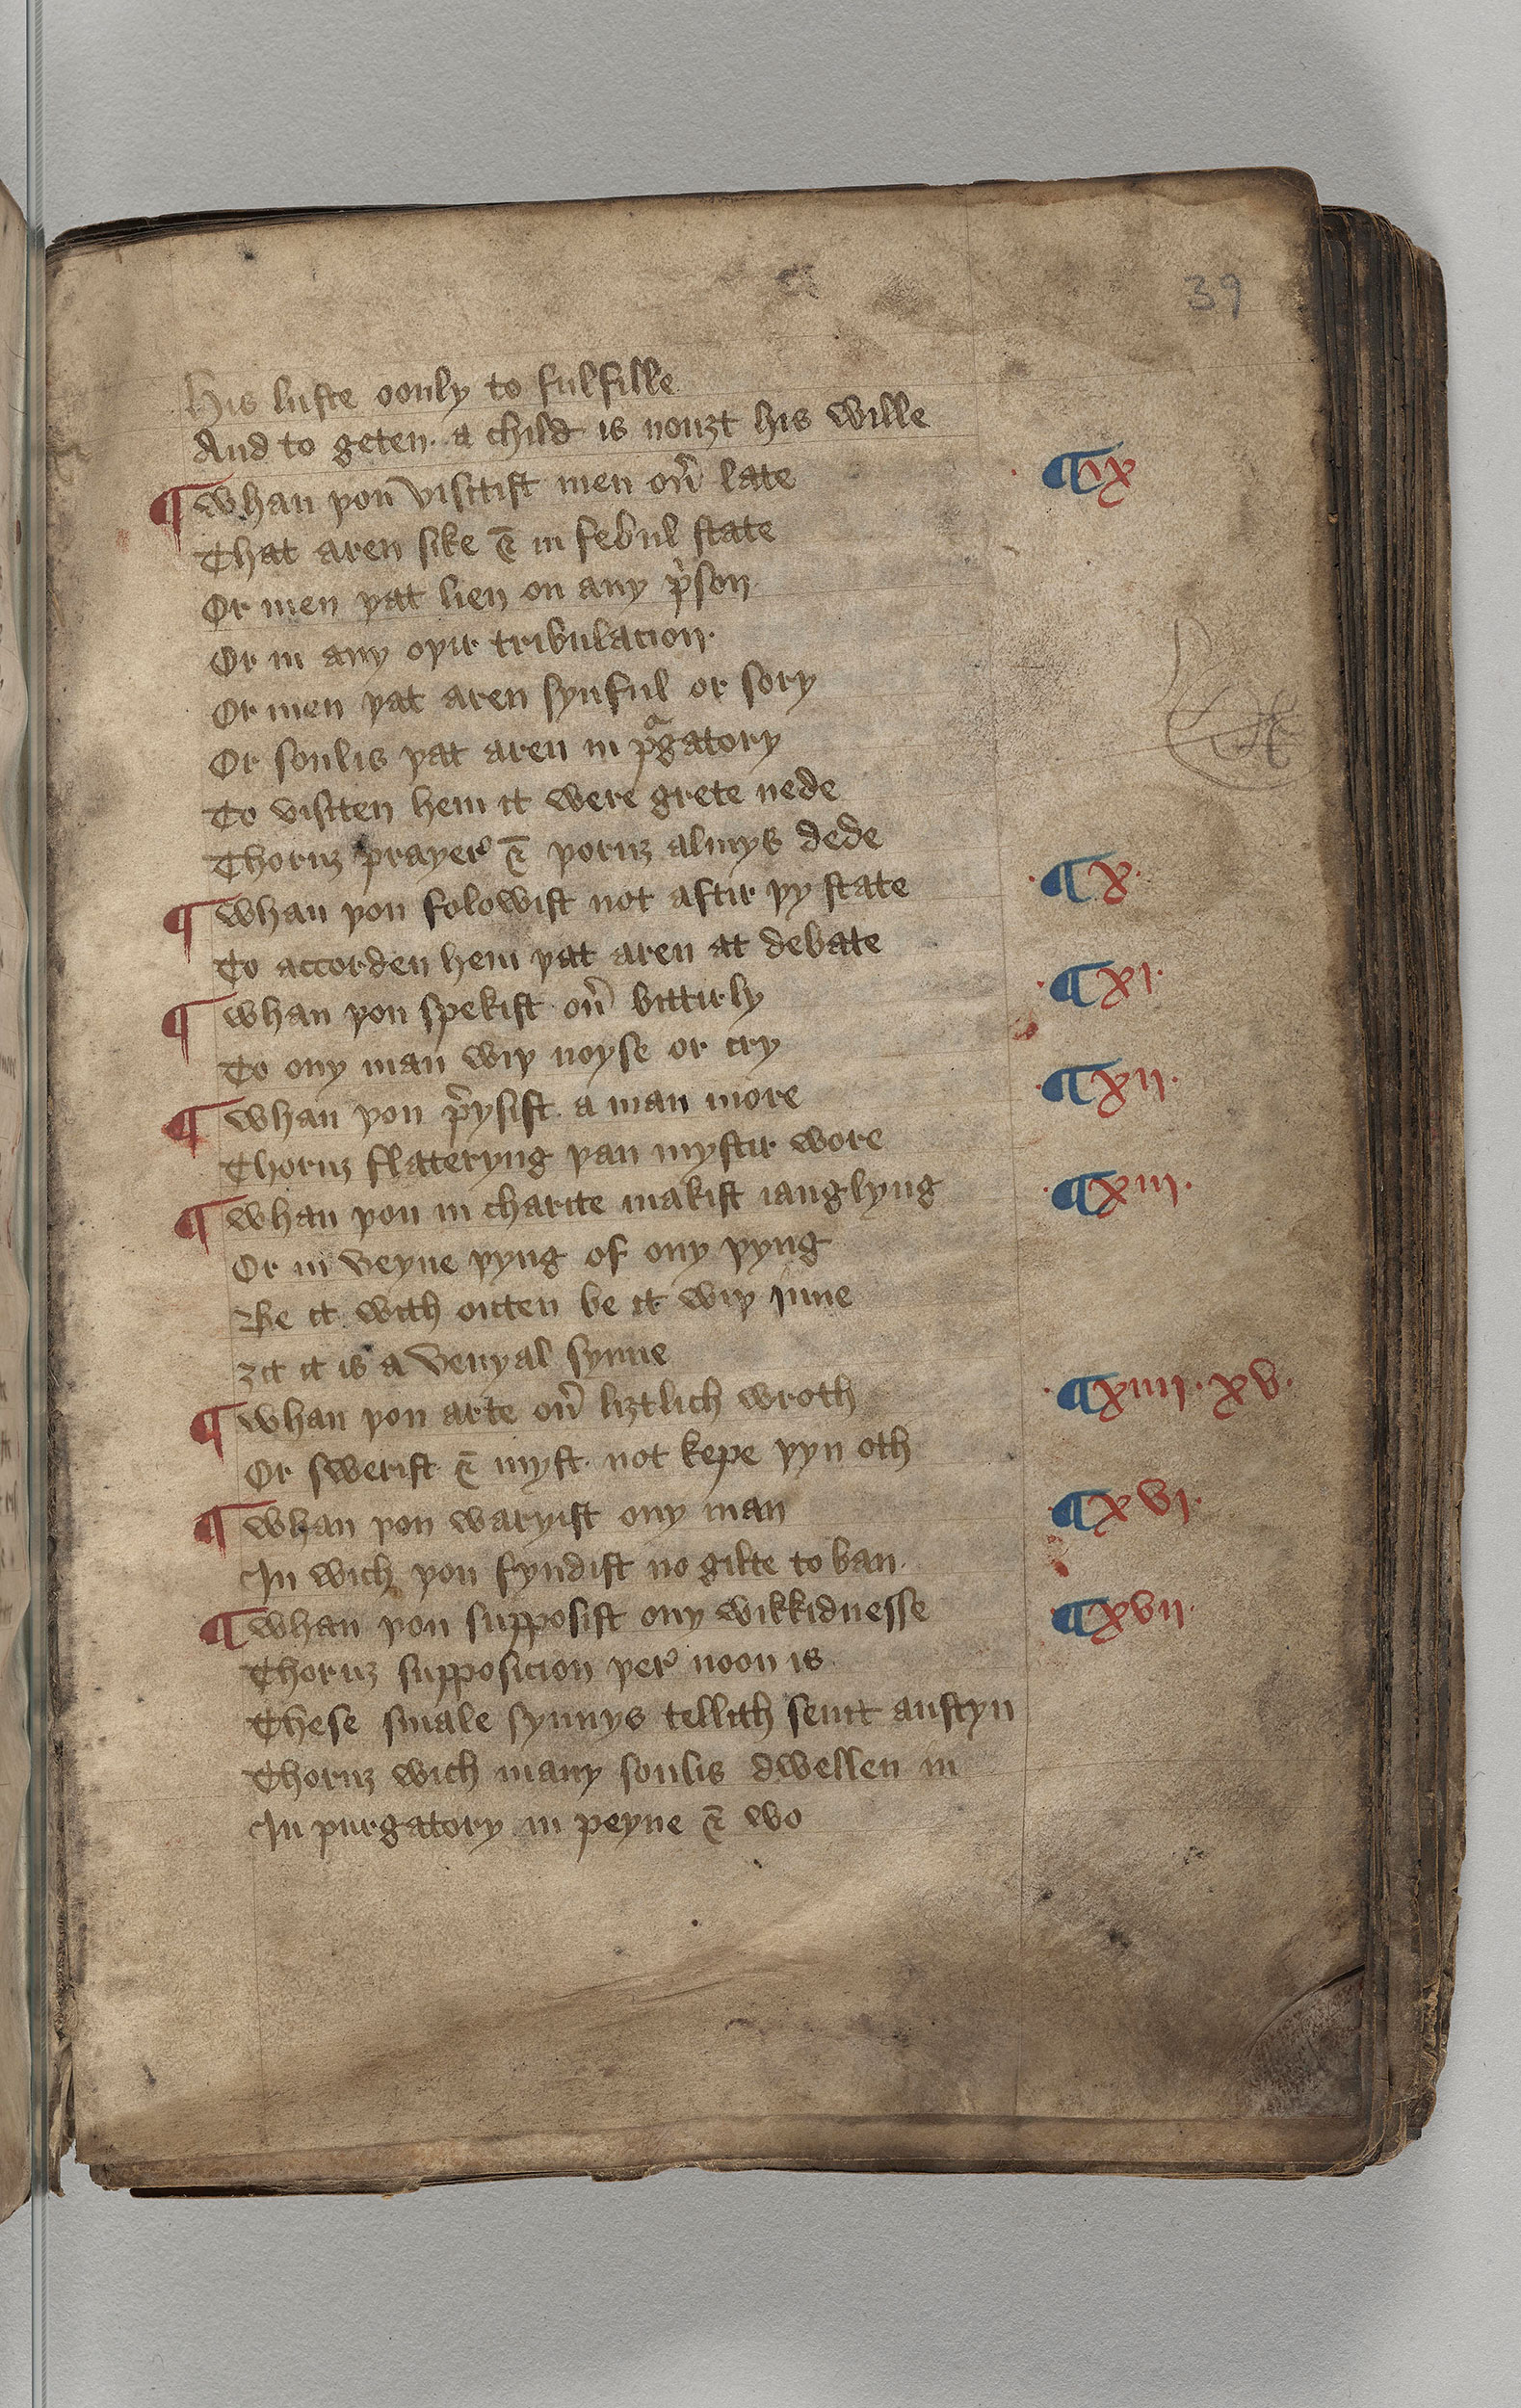 39
His luste oonly to fulfille
And to geten· a child is nouȝt his wille
¶ Whan þou visitist men ou̓ late ¶ ix
That aren sike & in febul state
Or men þat lien on any p̓son
Or in any oþir tribulacion·
Or men þat aren synful or sory
Or soulis þat aren in pᵃgatory
To visiten hem it were grete nede
Thoruȝ prayer̓ & þoruȝ almys dede
¶ Whan þou folowist not aftir þy state ·¶ x·
To accorden hem þat aren at debate
¶ Whan þou spekist ou̓ bittirly ·¶ xi·
To ony man wiþ noyse or cry
¶ Whan þou p̓ysist· a man more ·¶ xii·
Thoruȝ flateryng þan mystir wore
¶ Whan þou in charite makist iangl​yng ·¶ xiii·
Or in veyne þyng of ony þyng
Be it with outen be it wiþ inne
ȝit it is a venyal synne
¶ Whan þou arte ou̓ liȝtlich wroth ·¶ xiiii· xv·
Or swerist & myst· not kepe þyn oth
¶ Whan þou waryist ony man ·¶ xvi·
In wich þou fyndist no gilte to ban·
¶ Whan þou supposist ony wikkidnesse ·¶ xvii·
Thoruȝ supposicion þer̓ noon is·
These smale synnys tellith seint austyn
Thoruȝ wich many soulis dwellen in
In purgatory in peyne & wo